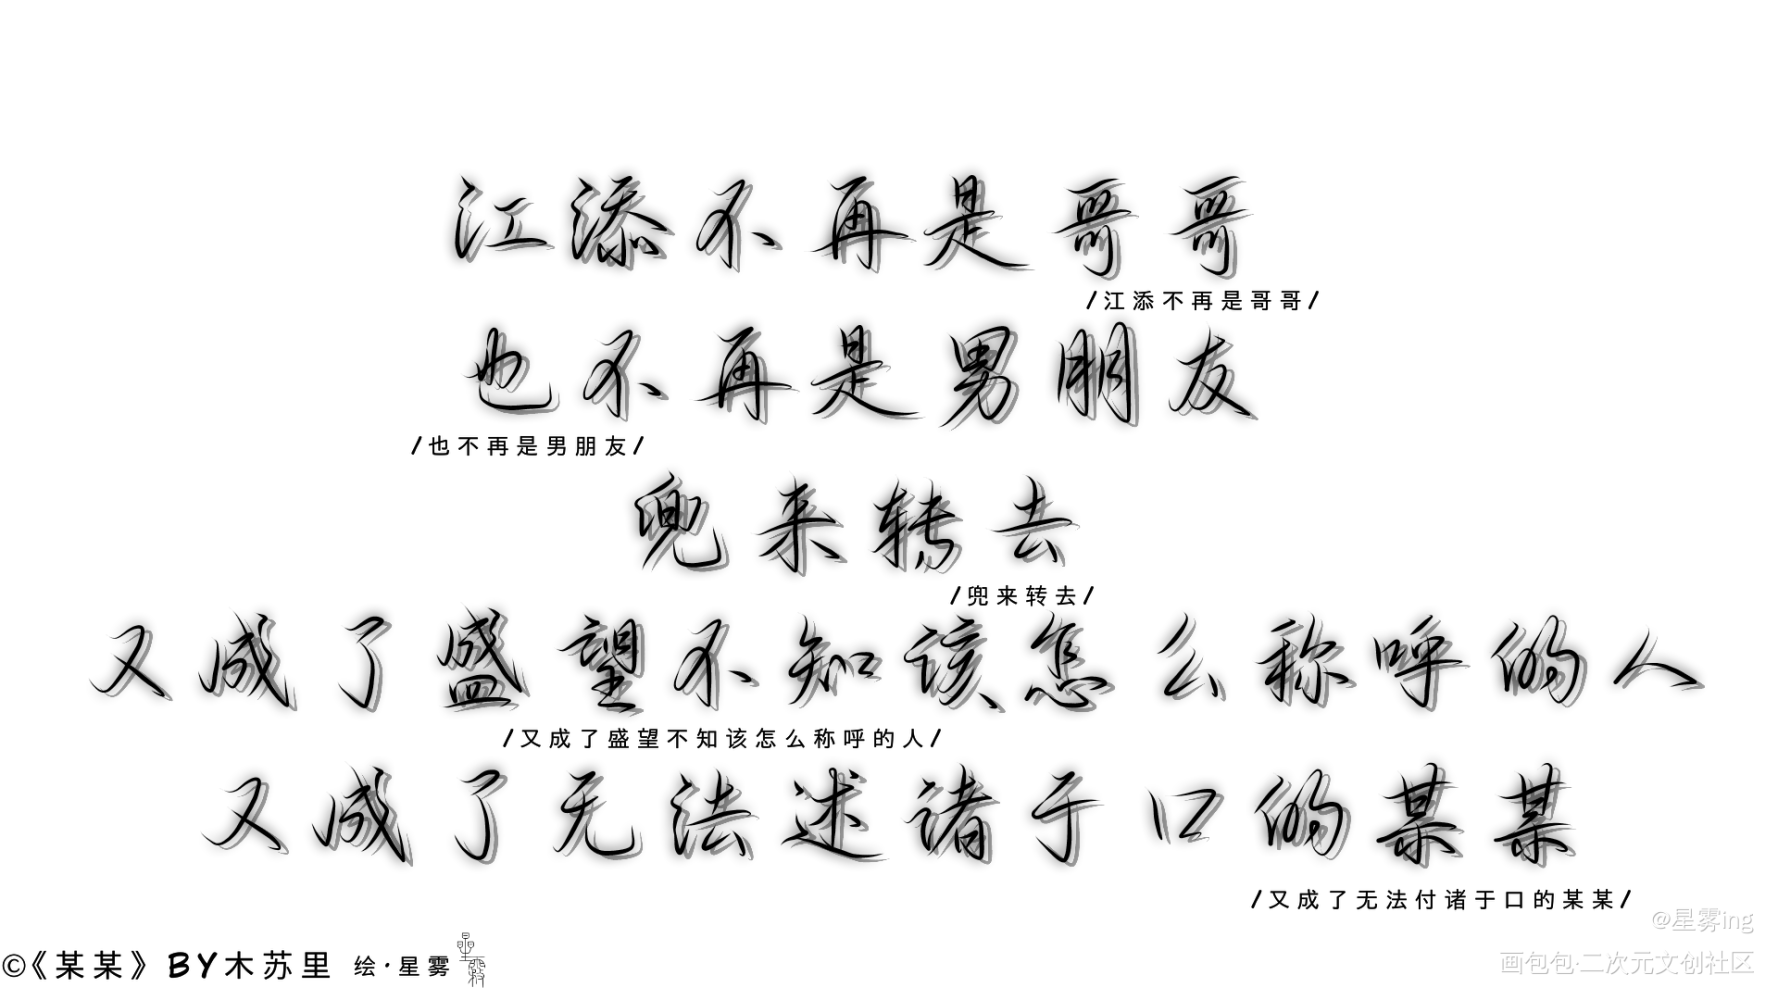 江添不再是哥哥
/江添不再是哥哥/
也不再是男朋友
/也不再是男朋友/
兜来转去
/兜来转去/
又成了盛望不知该怎么称呼的人
/又成了盛望不知该怎么称呼的人/
又成了无法述诸于口的某某
/又成了无法付诸于口的某某/
@星雾ing
©《某某》BY木苏里 绘·星雾
画包包·二次元文创社区